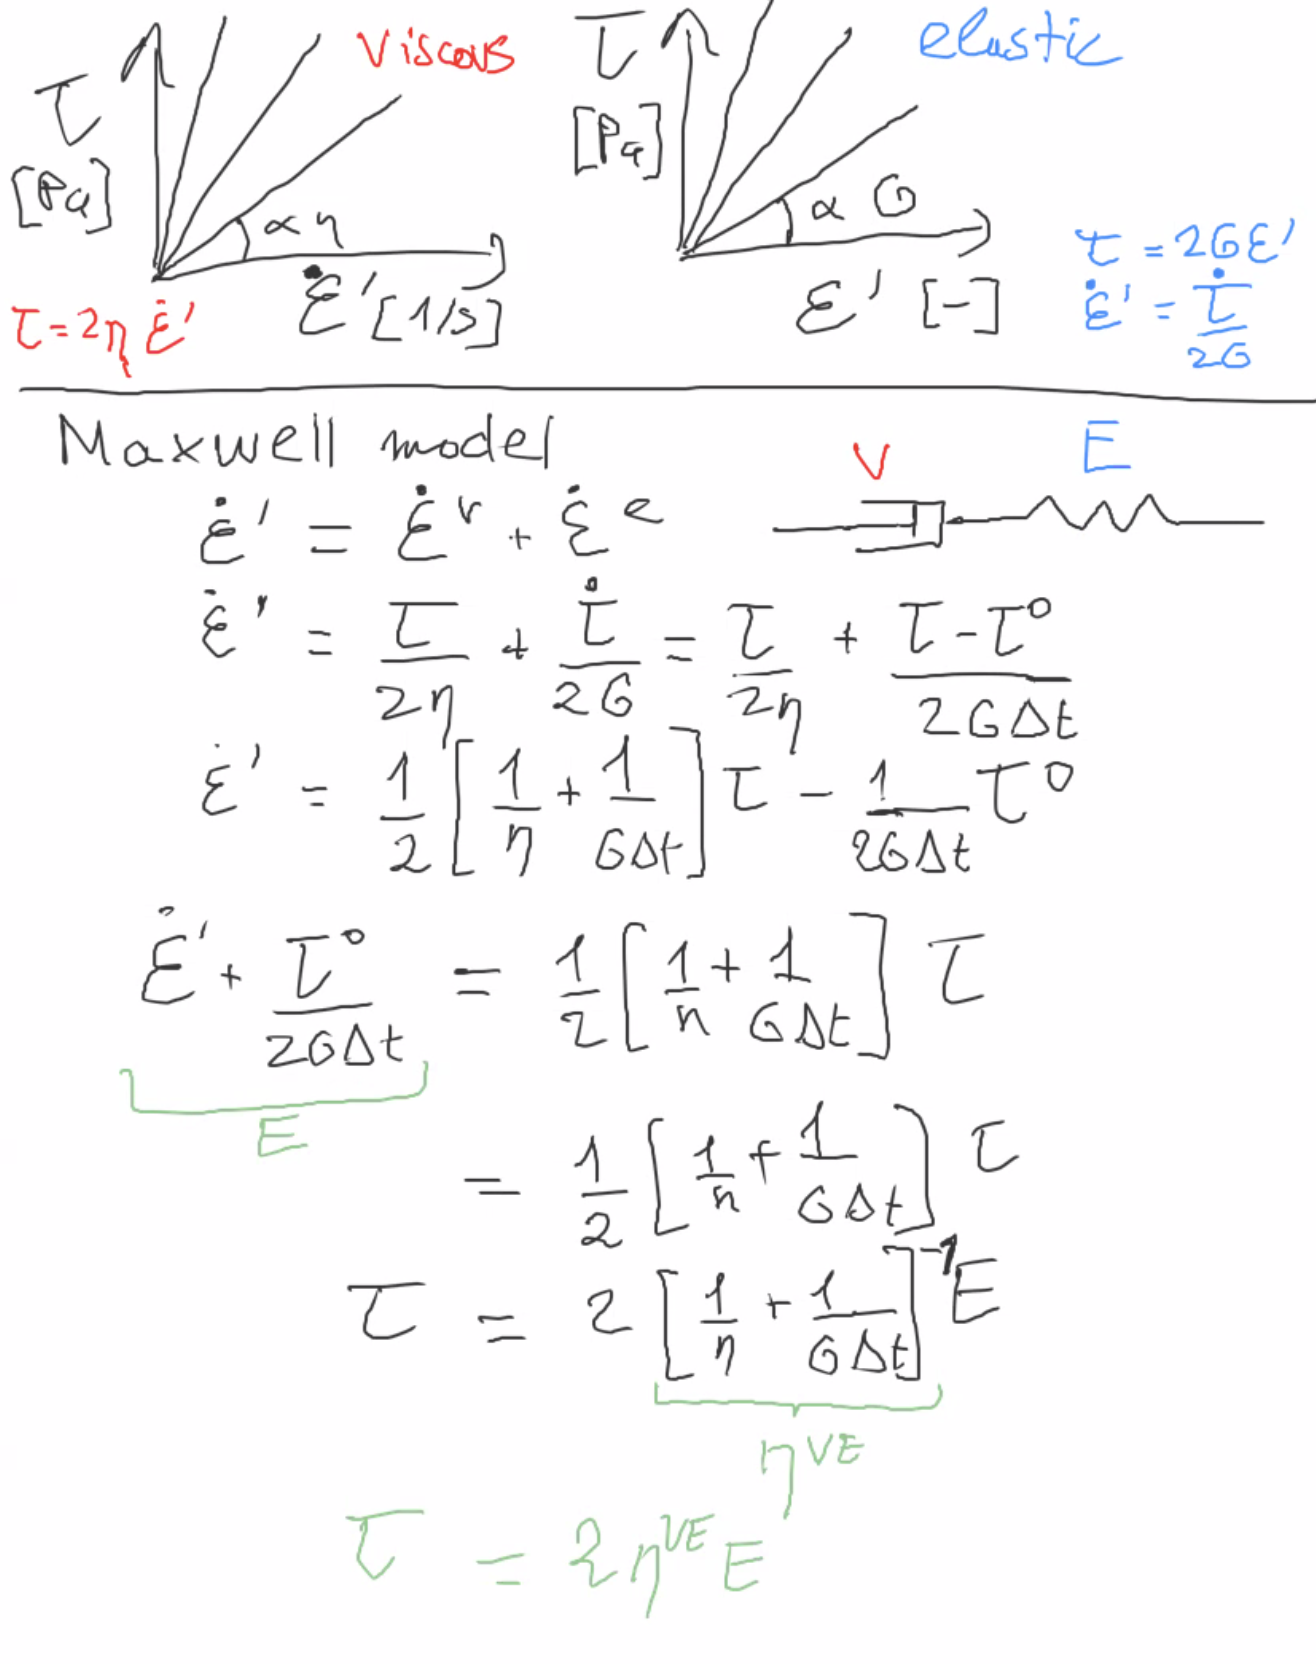 τ [Pa] viscous
α η
ε̇' [1/s]
τ = 2η ε̇'
τ [Pa] elastic
α G
ε' [-]
τ = 2Gε'
ε̇' = τ̇ / 2G
Maxwell model
V E
ε̇' = ε̇^v + ε̇^e
ε̇' = τ / 2η + τ̇ / 2G = τ / 2η + (τ - τ⁰) / 2GΔt
ε̇' = 1/2 [1/η + 1/GΔt] τ - 1/2GΔt τ⁰
ε̇' + τ⁰ / 2GΔt = 1/2 [1/η + 1/GΔt] τ
E
= 1/2 [1/η + 1/GΔt] τ
τ = 2 [1/η + 1/GΔt]⁻¹ E
η^VE
τ = 2η^VE E